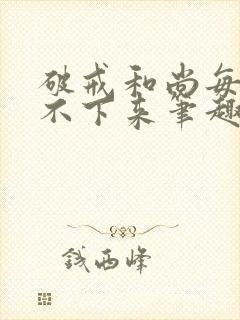 破戒和尚每
不下来笔趣
钱西峰